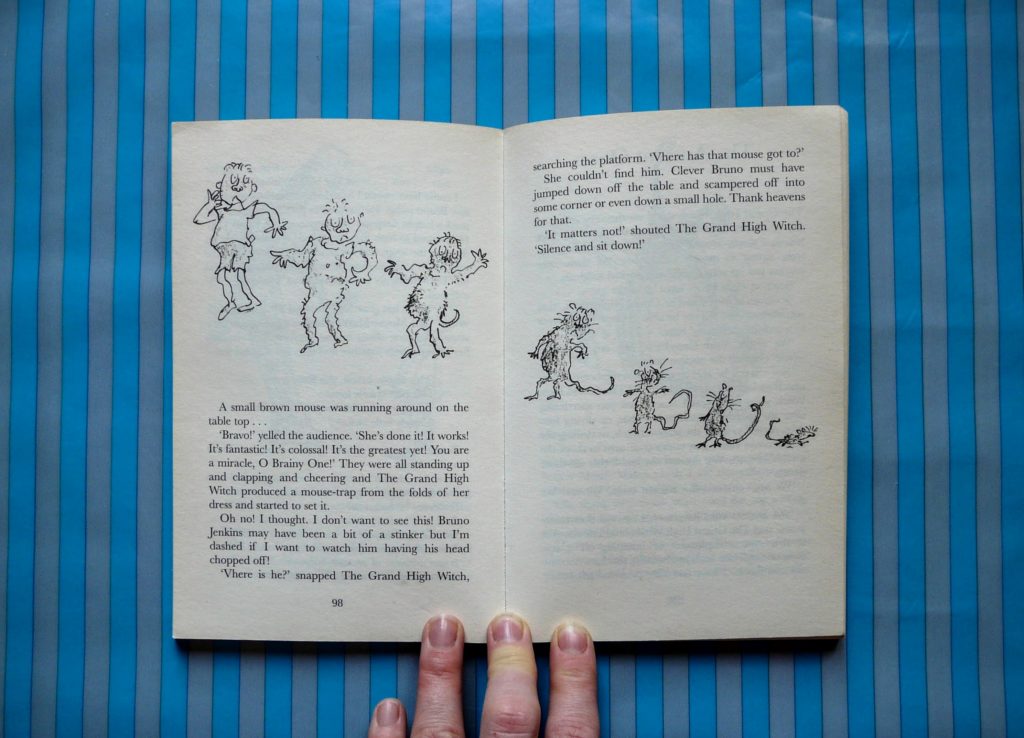 A small brown mouse was running around on the
table top . . .
‘Bravo!’ yelled the audience. ‘She’s done it! It works!
It’s fantastic! It’s colossal! It’s the greatest yet! You are
a miracle, O Brainy One!’ They were all standing up
and clapping and cheering and The Grand High
Witch produced a mouse-trap from the folds of her
dress and started to set it.
Oh no! I thought. I don’t want to see this! Bruno
Jenkins may have been a bit of a stinker but I’m
dashed if I want to watch him having his head
chopped off!
‘Vhere is he?’ snapped The Grand High Witch,
98
searching the platform. ‘Vhere has that mouse got to?’
She couldn’t find him. Clever Bruno must have
jumped down off the table and scampered off into
some corner or even down a small hole. Thank heavens
for that.
‘It matters not!’ shouted The Grand High Witch.
‘Silence and sit down!’